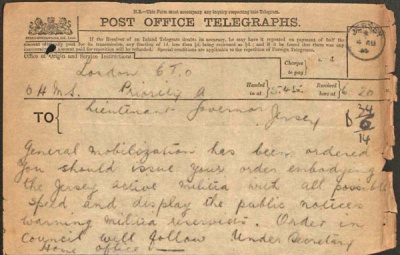 N.B.—This Form must accompany any inquiry respecting this Telegram.
POST OFFICE TELEGRAPHS.
If the Receiver of an Inland Telegram doubts its accuracy, he may have it repeated on payment of half the
amount originally paid for its transmission, any fraction of 1d. less than ½d. being reckoned as ½d.; and if it be found that there was any
inaccuracy, the amount paid for repetition will be refunded. Special conditions are applicable to the repetition of Foreign Telegrams.
Office of Origin and Service Instructions.
London C T O
O H M S. Priority A
Handed in at
Received here at 6 20
TO Lieutenant Governor
Jersey
General mobilization has been ordered
You should issue your order embodying
the Jersey active militia with all possible
speed and display the public notices
warning militia reservists. Order in
Council will follow Under Secretary
Home office